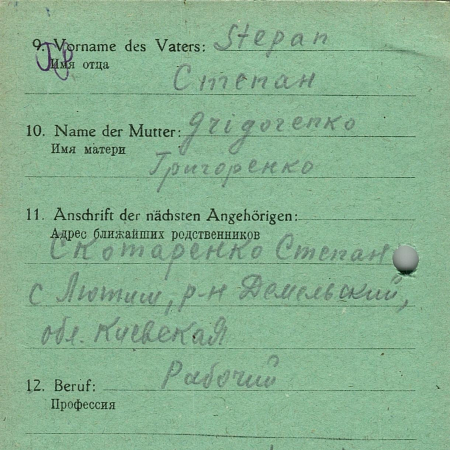 9. Vorname des Vaters: Stepan
Имя отца
Степан
10. Name der Mutter: grigorenko
Имя матери
Григоренко
11. Anschrift der nächsten Angehörigen:
Адрес ближайших родственников
Скотаренко Степан
с Лютиш, р-н Демельский,
обл. Киевская
12. Beruf: Рабочий
Профессия